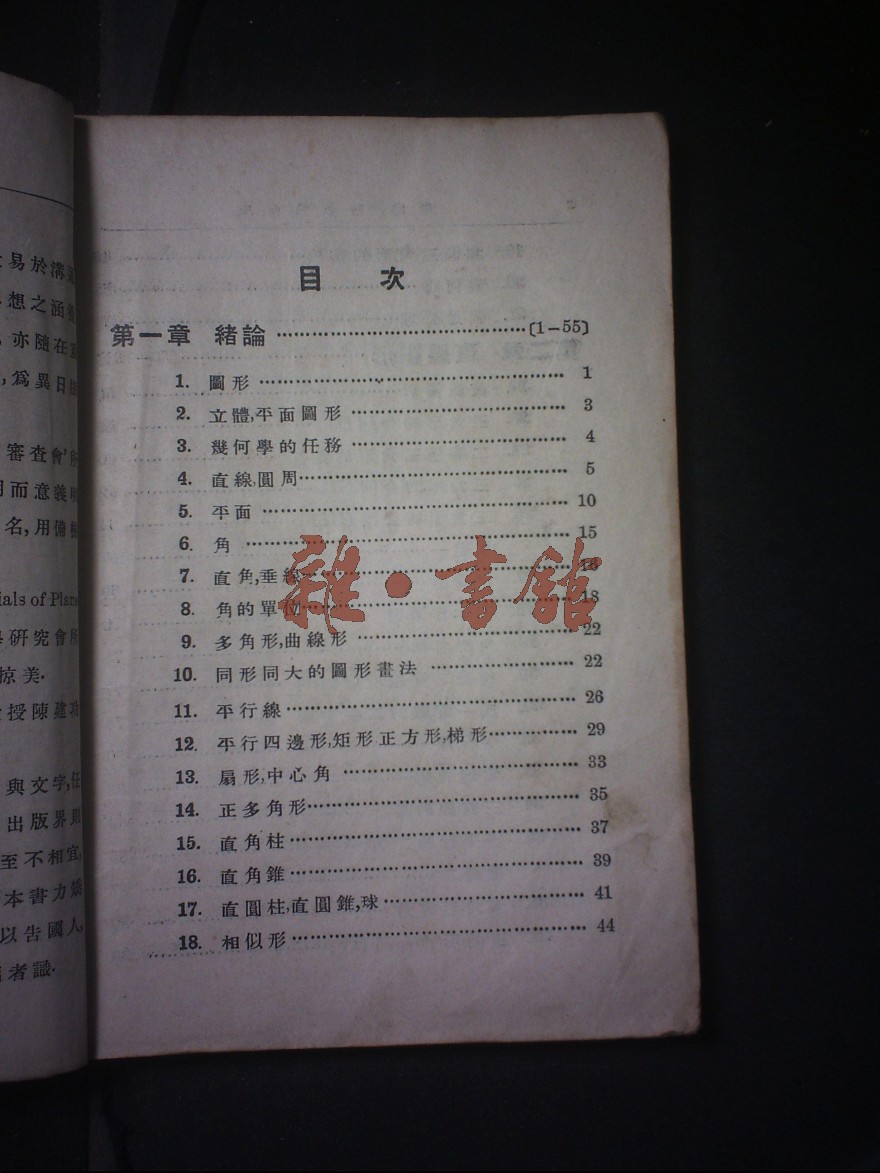 易於溝
想之涵
亦隨在
,為異日
審查會所
而意義
名,用備
ials of Plane
學研究會所
掠美.
授陳建功
與文字,任
出版界則
至不相宜,
本書力矯
以告國人,
者識.
目 次
第一章 緒論 ……………………………〔1—55〕
1. 圖形 …………………………………… 1
2. 立體,平面圖形 ………………………… 3
3. 幾何學的任務 ………………………… 4
4. 直線,圓周……………………………… 5
5. 平面 …………………………………… 10
6. 角 ……………………………………… 15
7. 直角,垂線……………………………… 16
8. 角的單位……………………………… 18
9. 多角形,曲線形 ………………………… 22
10. 同形同大的圖形畫法 ……………… 22
11. 平行線………………………………… 26
12. 平行四邊形,矩形正方形,梯形………… 29
13. 扇形,中心角 ………………………… 33
14. 正多角形……………………………… 35
15. 直角柱………………………………… 37
16. 直角錐………………………………… 39
17. 直圓柱,直圓錐,球……………………… 41
18. 相似形………………………………… 44
雜·書館